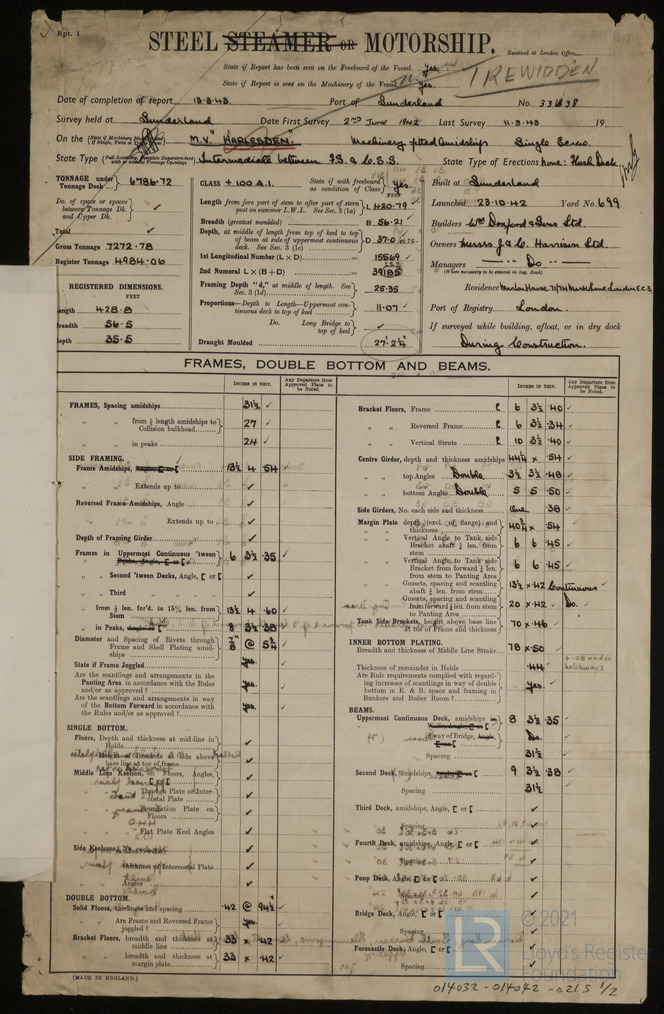 Rpt. 1
STEEL STEAMER OR MOTORSHIP.
Received at London Office
State if Report has been sent on the Freeboard of the Vessel Yes.
State if Report is sent on the Machinery of the Vessel Yes.
TREWIDDEN
Date of completion of report 13.3.43. Port of Sunderland No. 33638
Survey held at Sunderland Date First Survey 2nd June 1942 Last Survey 11.3.43 19
On the M.V. "HARLESDEN." Machinery fitted Amidships Single Screw.
State Type Intermediate between F.S. & C.S.S. State Type of Erections None: Flush Deck
TONNAGE under Tonnage Deck 6786.72
Do. of space or spaces between Tonnage Dk. and Upper Dk.
Total
Gross Tonnage 7272.78
Register Tonnage 4984.06
REGISTERED DIMENSIONS.
FEET
Length 428.8
Breadth 56.5
Depth 35.5
CLASS +100 A.1. State if with freeboard as condition of Class Yes
FEET
Length from fore part of stem to after part of stern post on summer L.W.L. See Sec. 3 (1a) L 420.79
Breadth (greatest moulded) B 56.21
Depth, at middle of length from top of keel to top of beam at side of uppermost continuous deck. See Sec. 3 (1c) D 37.0
1st Longitudinal Number (L × D) = 15569
2nd Numeral L × (B + D) =
Framing Depth "d," at middle of length. See Sec. 3 (1d) 25.35
Proportions—Depth to Length—Uppermost continuous deck to top of keel 11.07
Do. Long Bridge to top of keel
Draught Moulded 27'.2¼"
Built at Sunderland
Launched 23.10.42 Yard No. 699
Builders Wm Doxford & Sons Ltd.
Owners Messrs J & C. Harrison Ltd.
Managers Do
(Where necessary to be entered in Reg. Book)
Residence Mark Lane London E.C.3
Port of Registry London.
If surveyed while building, afloat, or in dry dock
During Construction.
FRAMES, DOUBLE BOTTOM AND BEAMS.
INCHES IN SHIP. Any Departure from Approved Plans to be Noted.
FRAMES, Spacing amidships 31½
" " from ⅗ length amidships to Collision bulkhead 27
" " in peaks 24
SIDE FRAMING.
Frame Amidships, 13½ 4 .54
" " Extends up to
Reversed Frame Amidships, Angle
" " Extends up to
Depth of Framing Girder
Frames in Uppermost Continuous 'tween Decks, Angle, [ or [ 6 3½ .35
" Second 'tween Decks, Angle, [ or [
" Third " "
" from ⅕ len. for'd. to 15% len. from Stem 13½ 4 .60
" in Peaks, 8 3½ .38
Diameter and Spacing of Rivets through Frame and Shell Plating amidships 7/8" @ 5¼
State if Frame Joggled Yes.
Are the scantlings and arrangements in the Panting Area in accordance with the Rules and/or as approved? Yes.
Are the scantlings and arrangements in way of the Bottom Forward in accordance with the Rules and/or as approved? Yes.
SINGLE BOTTOM.
Floors, Depth and thickness at mid-line in Holds
Height of Brackets at side above base line at toe of frame
Middle Line Keelson, on Floors, Angles, [ or [
" " Through Plate or Intercostal Plate
" " Foundation Plate on Floors
" " Flat Plate Keel Angles
Side Keelsons, No. each side
" thickness of Intercostal Plate
" Angles
DOUBLE BOTTOM.
Solid Floors, thickness and spacing .42 @ 94½
Are Frame and Reversed Frame joggled? Yes.
Bracket Floors, breadth and thickness at middle line 33 × .42
" " breadth and thickness at margin plate 33 × .42
(MADE IN ENGLAND.)
INCHES IN SHIP. Any Departure from Approved Plans to be Noted.
Bracket Floors, Frame 6 3½ .40
" " Reversed Frame 6 3½ .34
" " Vertical Struts 10 3½ .40
Centre Girder, depth and thickness amidships 44¼ × .54
" " top Angles Double 3½ 3½ .48
" " bottom Angles Double 5 5 .50
Side Girders, No. each side and thickness One .38
Margin Plate depth (excl. of flange) and thickness 40¼ × .54
" " Vertical Angle to Tank side Bracket abaft ¼ len. from stem 6 6 .45
" " Vertical Angle to Tank side Bracket from forward ¼ len. from stem to Panting Area 6 6 .45
" " Gussets, spacing and scantling abaft ¼ len. from stem 13½ × .42 Continuous
" " Gussets, spacing and scantling from forward ¼ len. from stem to Panting Area 20 × .42 Do.
Tank Side Brackets, height above base line at toe of Frame and thickness 70 × .46
INNER BOTTOM PLATING.
Breadth and thickness of Middle Line Strake 78 × .50
Thickness of remainder in Holds .44 under hatchways
Are Rule requirements complied with regarding increases of scantlings in way of double bottom in E. & B. space and framing in Bunkers and Boiler Room? Yes.
BEAMS.
Uppermost Continuous Deck, amidships 8 3½ .35
" " in way of Bridge, Angle, Do.
Spacing 31½
Second Deck, amidships, 9 3½ .38
Spacing 31½
Third Deck, amidships, Angle, [ or [
Spacing
Fourth Deck, amidships, Angle, [ or [
Spacing
Poop Deck, Angle, [ or [
Spacing
Bridge Deck, Angle, [ or [
Spacing
Forecastle Deck, Angle, [ or [
Spacing
LR © 2021
Lloyd's Register
Foundation
014032-014042-0215 1/2